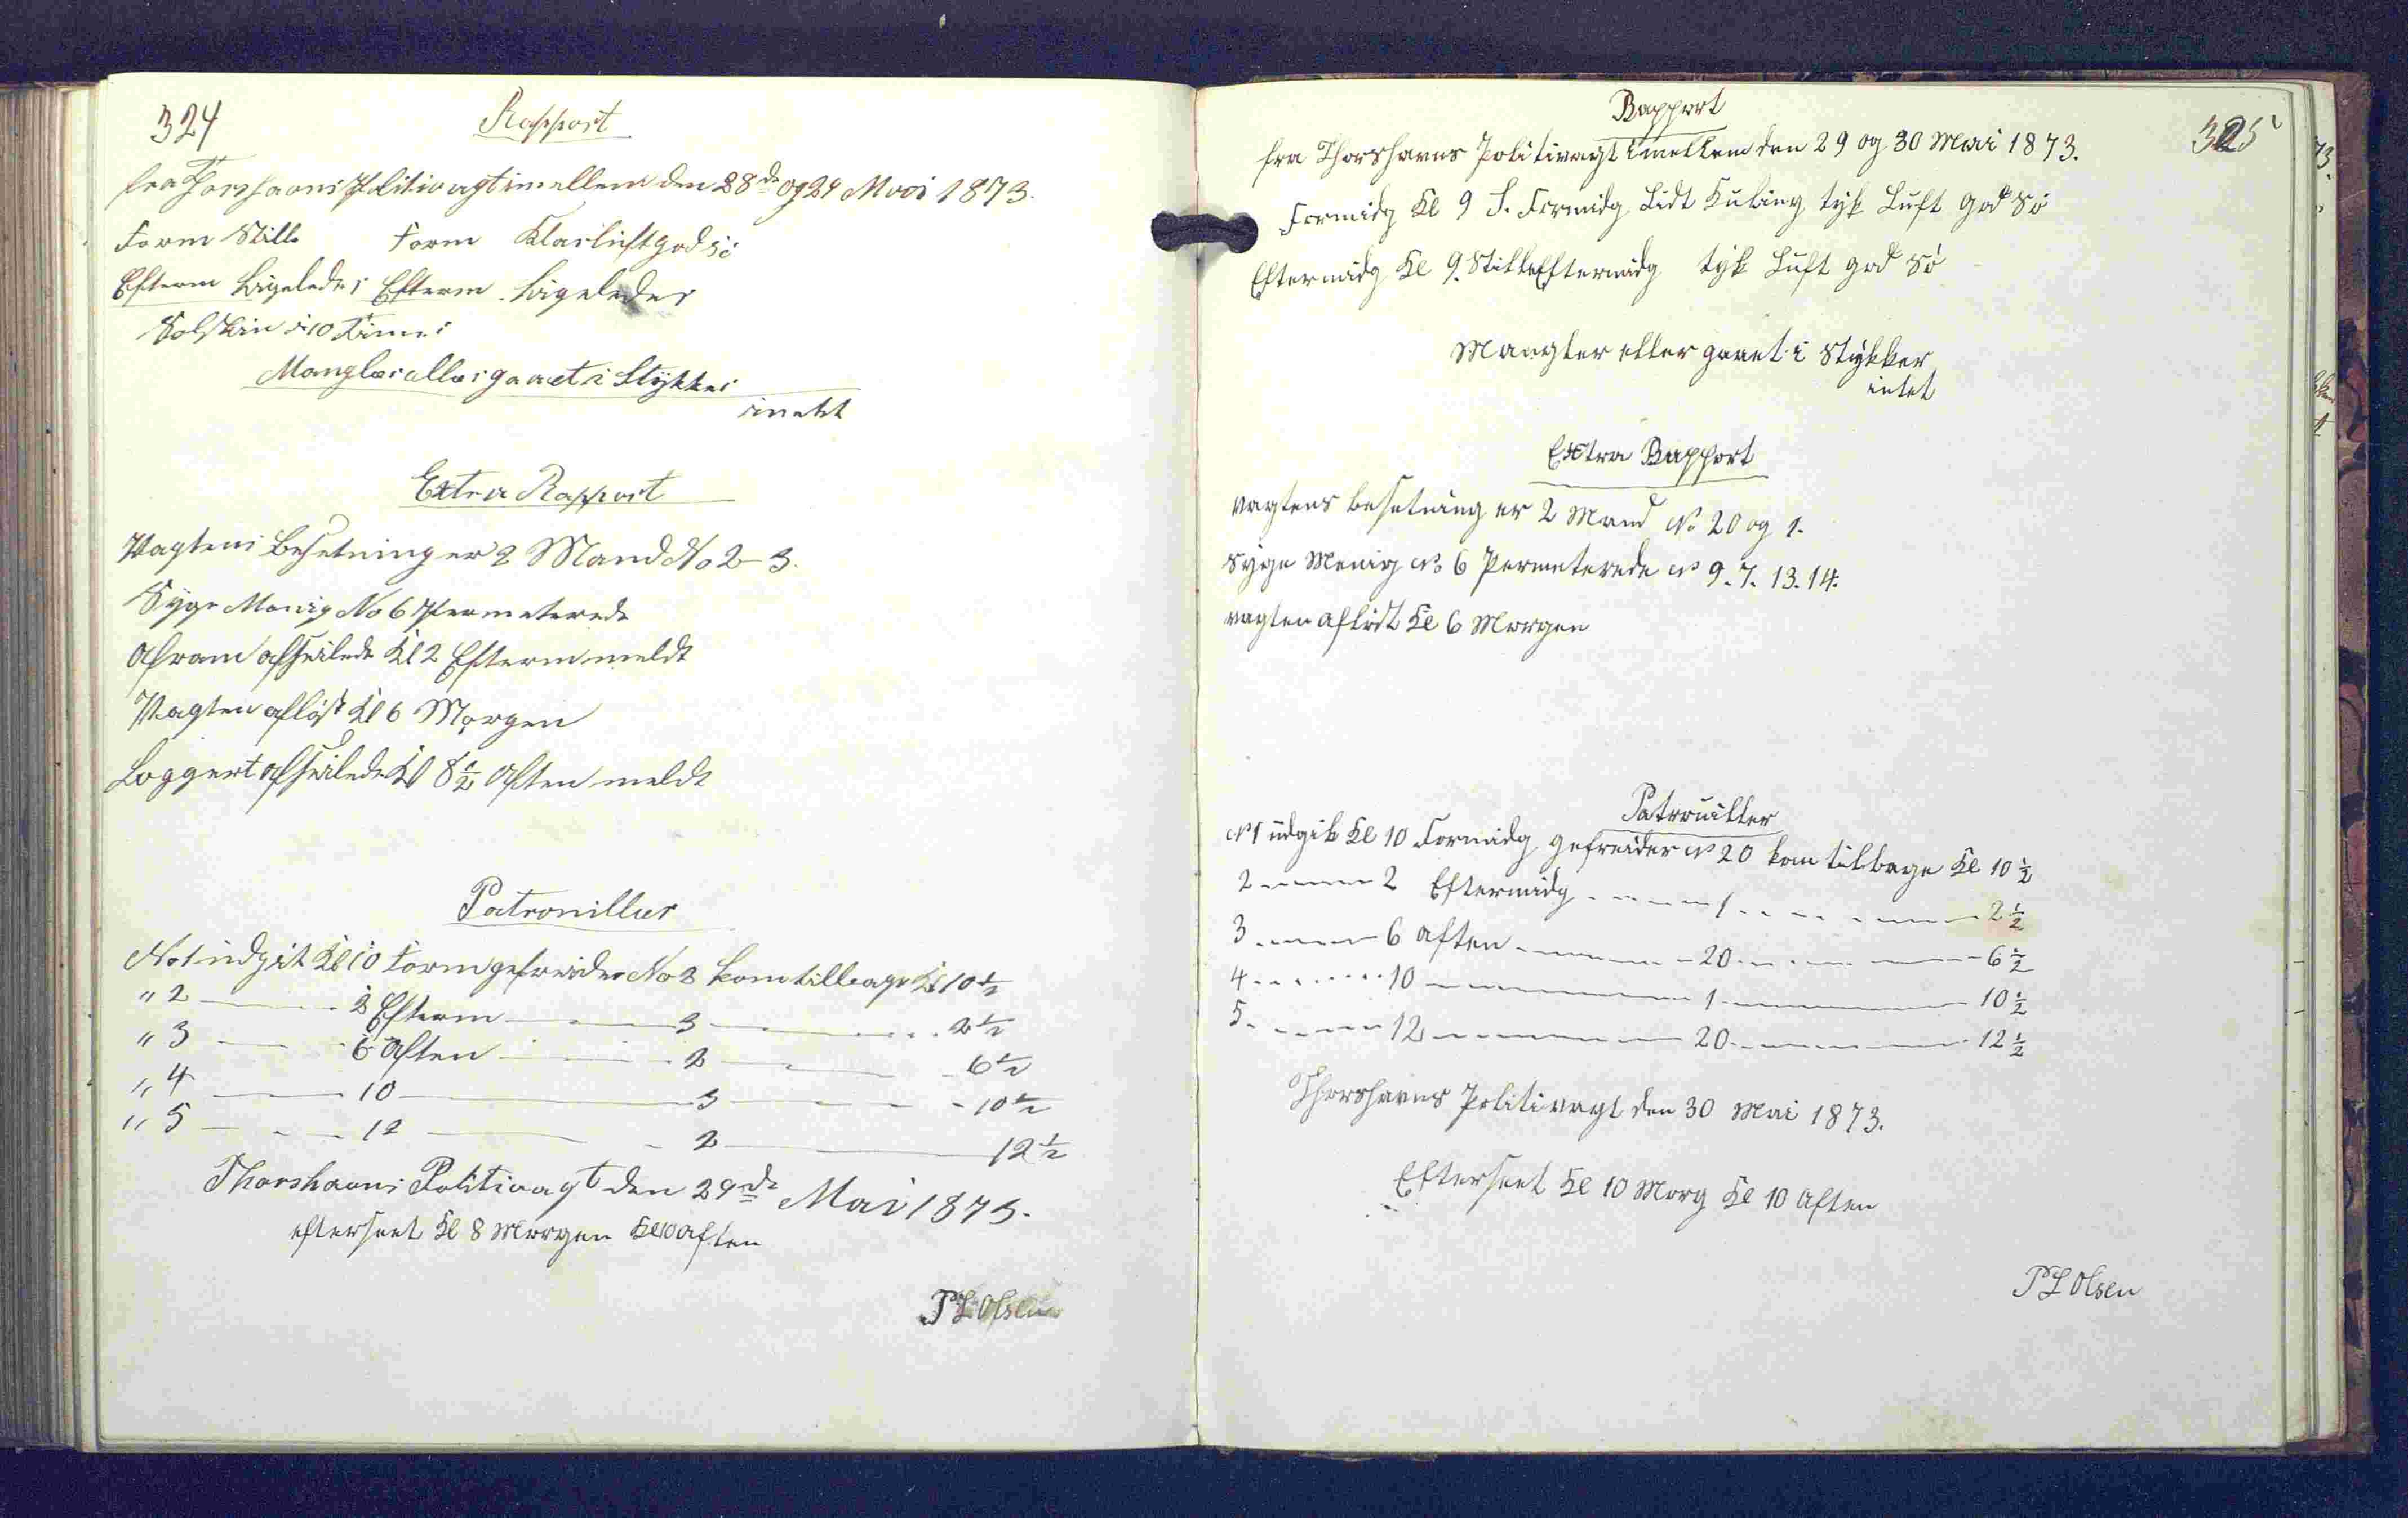 324
Rapport
fra Thorshavns Politivagt imellem den 28de og 29 Mai 1873.
Form Stille Form Klar luft god sö
Efterm Ligeledes Efterm. Ligeledes
Solskin i 10 Timer
Mangler eller gaaet i Stykker
intet
Extra Rapport
Vagtens Besetning er 2 Mand No 2-3.
Syge Menig No 6 Permeterede
afseilede Kl 2 Efterm meldt
Vagten aflöst Kl 6 Morgen
Loggert afseilede Kl 8½ Aften meldt
Patrouiller
No 1 udgik Kl 10 Form gefreider No 2 kom tilbage Kl 10½
" 2 — 2 Efterm — 3 — 2½
" 3 — 6 Aften — 2 — 6½
" 4 — 10 — 3 — 10½
" 5 — 12 — 2 — 12½
Thorshavns Politivagt den 29de Mai 1873.
efterseet Kl 8 Morgen Kl 10 Aften
P L Olsen
325
Rapport
fra Thorshavns Politivagt imellem den 29 og 30 Mai 1873.
Formidg Kl 9 S. Formidg Lidt Kuling tyk Luft god Sö
Eftermidg Kl 9. Stille Eftermidg tyk Luft god Sö
Mangler eller gaaet i Stykker
intet
Extra Rapport
vagtens besetning er 2 Mand No 20 og 1.
Syge Menig No 6 Permeterede No 9. 7. 13. 14.
vagten aflöst Kl 6 Morgen
Patrouiller
No 1 udgik Kl 10 Formidg gefreider No 20 kom tilbage Kl 10½
2 — 2 Eftermidg — 1 — 2½
3 — 6 aften — 20 — 6½
4 — 10 — 1 — 10½
5 — 12 — 20 — 12½
Thorshavns Politivagt den 30 Mai 1873.
Efterseet Kl 10 Morg Kl 10 Aften
P L Olsen